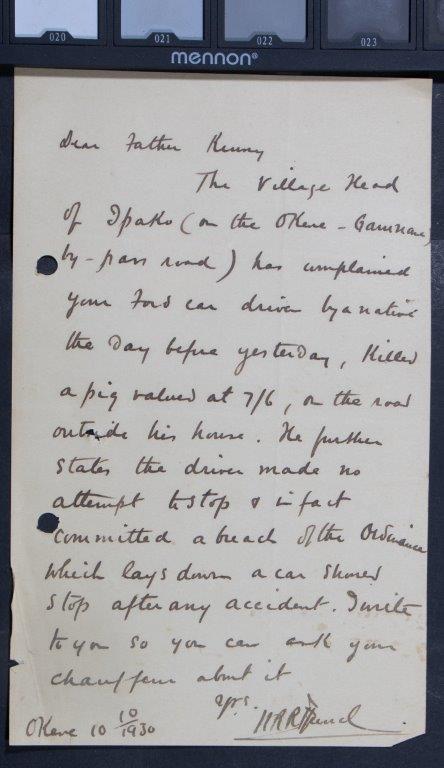 020 021 022 023
mennon®
Dear Father Kenny
The Village Head
of Ipako (on the Okene - 
by-pass road) has complained
your Ford car driven by a native
the day before yesterday, killed
a pig valued at 7/6, on the road
outside his house. He further
states the driver made no
attempt to stop & in fact
committed a breach of the Ordinance
which lays down a car should
stop after any accident. I write
to you so you can ask your
chauffeur about it
Yrs.
Okene 10 10/1930